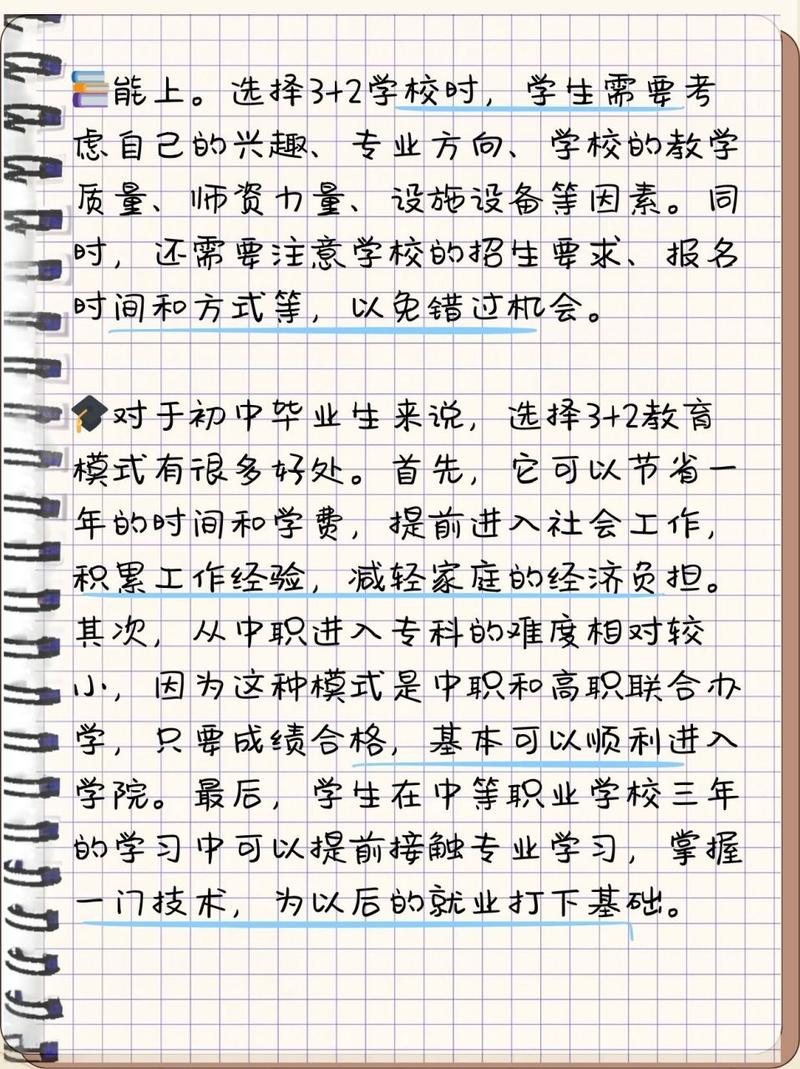 📚能上。选择3+2学校时，学生需要考
虑自己的兴趣、专业方向、学校的教学
质量、师资力量、设施设备等因素。同
时，还需要注意学校的招生要求、报名
时间和方式等，以免错过机会。
🎓对于初中毕业生来说，选择3+2教育
模式有很多好处。首先，它可以节省一
年的时间和学费，提前进入社会工作，
积累工作经验，减轻家庭的经济负担。
其次，从中职进入专科的难度相对较
小，因为这种模式是中职和高职联合办
学，只要成绩合格，基本可以顺利进入
学院。最后，学生在中等职业学校三年
的学习中可以提前接触专业学习，掌握
一门技术，为以后的就业打下基础。